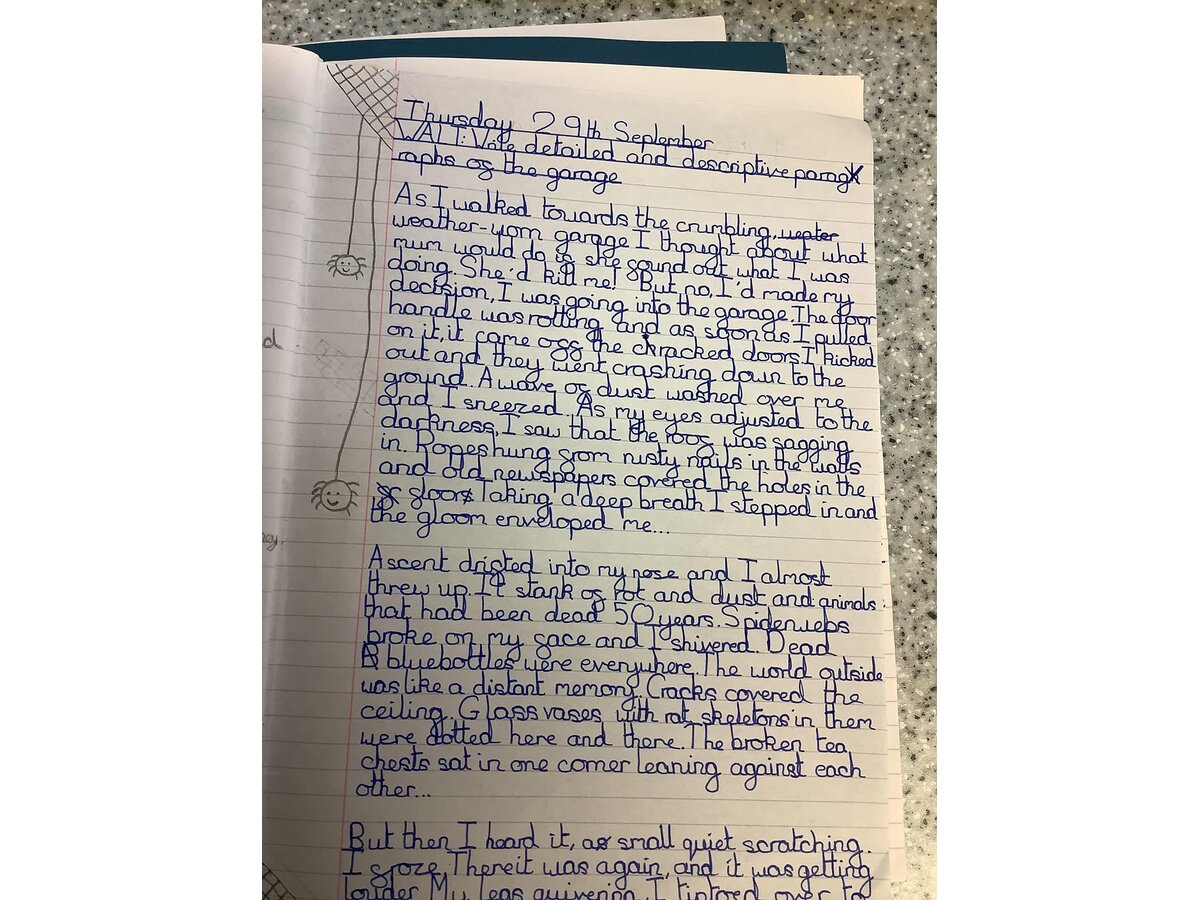 Thursday 29th September
WALT: Wite detailed and descriptive parag
raphs of the garage
As I walked towards the crumbling, weater
weather-worn garage I thought about what
mum would do if she found out what I was
doing. She'd kill me! But no, I'd made my
decision, I was going into the garage. The door
handle was rotting and as soon as I pulled
on it, it came off the crracked doors. I kicked
out and they went crashing down to the
ground. A wave of dust washed over me
and I sneezed. As my eyes adjusted to the
darkness, I saw that the roof was sagging
in. Ropes hung from rusty nails in the walls
and old newspapers covered the holes in the
floors. Taking a deep breath I stepped in and
the gloom enveloped me...
A scent drifted into my nose and I almost
threw up. It stank of rot and dust and animals
that had been dead 50 years. Spiderwebs
broke on my face and I shivered. Dead
bluebottles were everywhere. The world outside
was like a distant memory. Cracks covered the
ceiling. Glass vases with rat skeletons in them
were dotted here and there. The broken tea
chests sat in one corner leaning against each
other...
But then I heard it, a small quiet scratching.
I froze. There it was again, and it was getting
louder. My legs quivering, I tiptoed over to
d